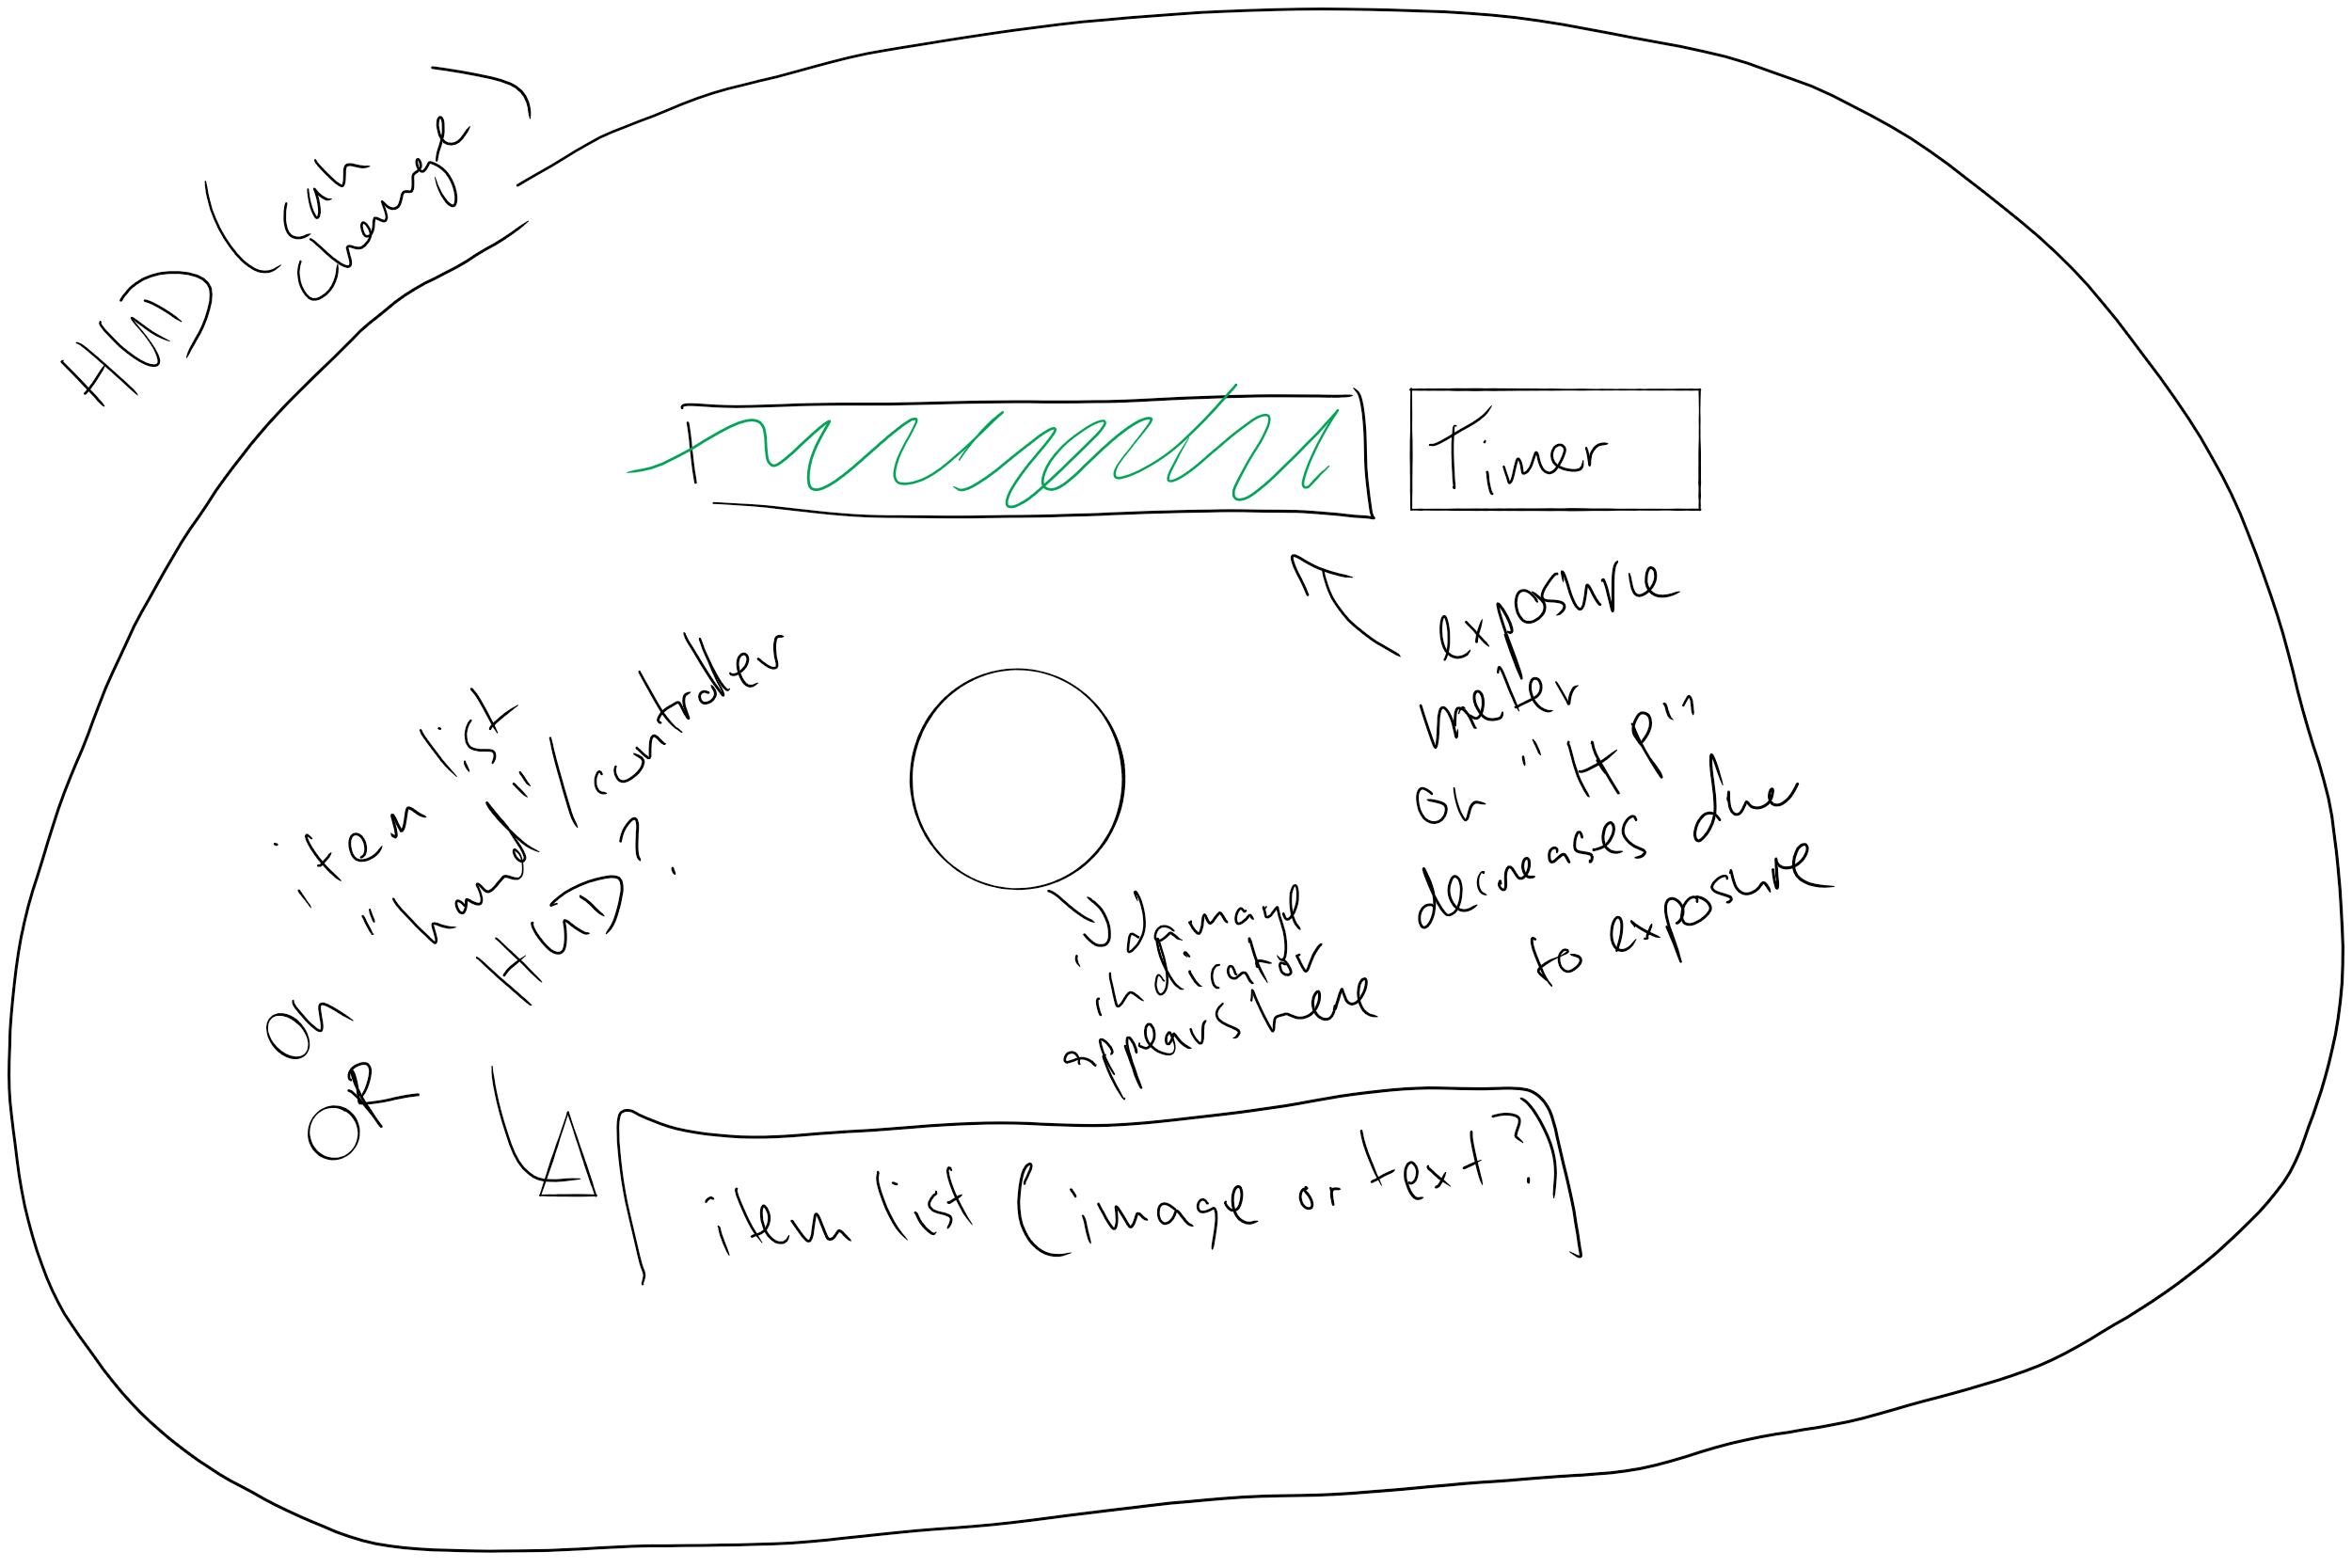 HUD (Can
Change)
Timer
exposure
meter
or "HP"
decreases due
to exposure
item list
on "hand"/controller
OR HUD?
indicator
appears here
item list (image or text?)